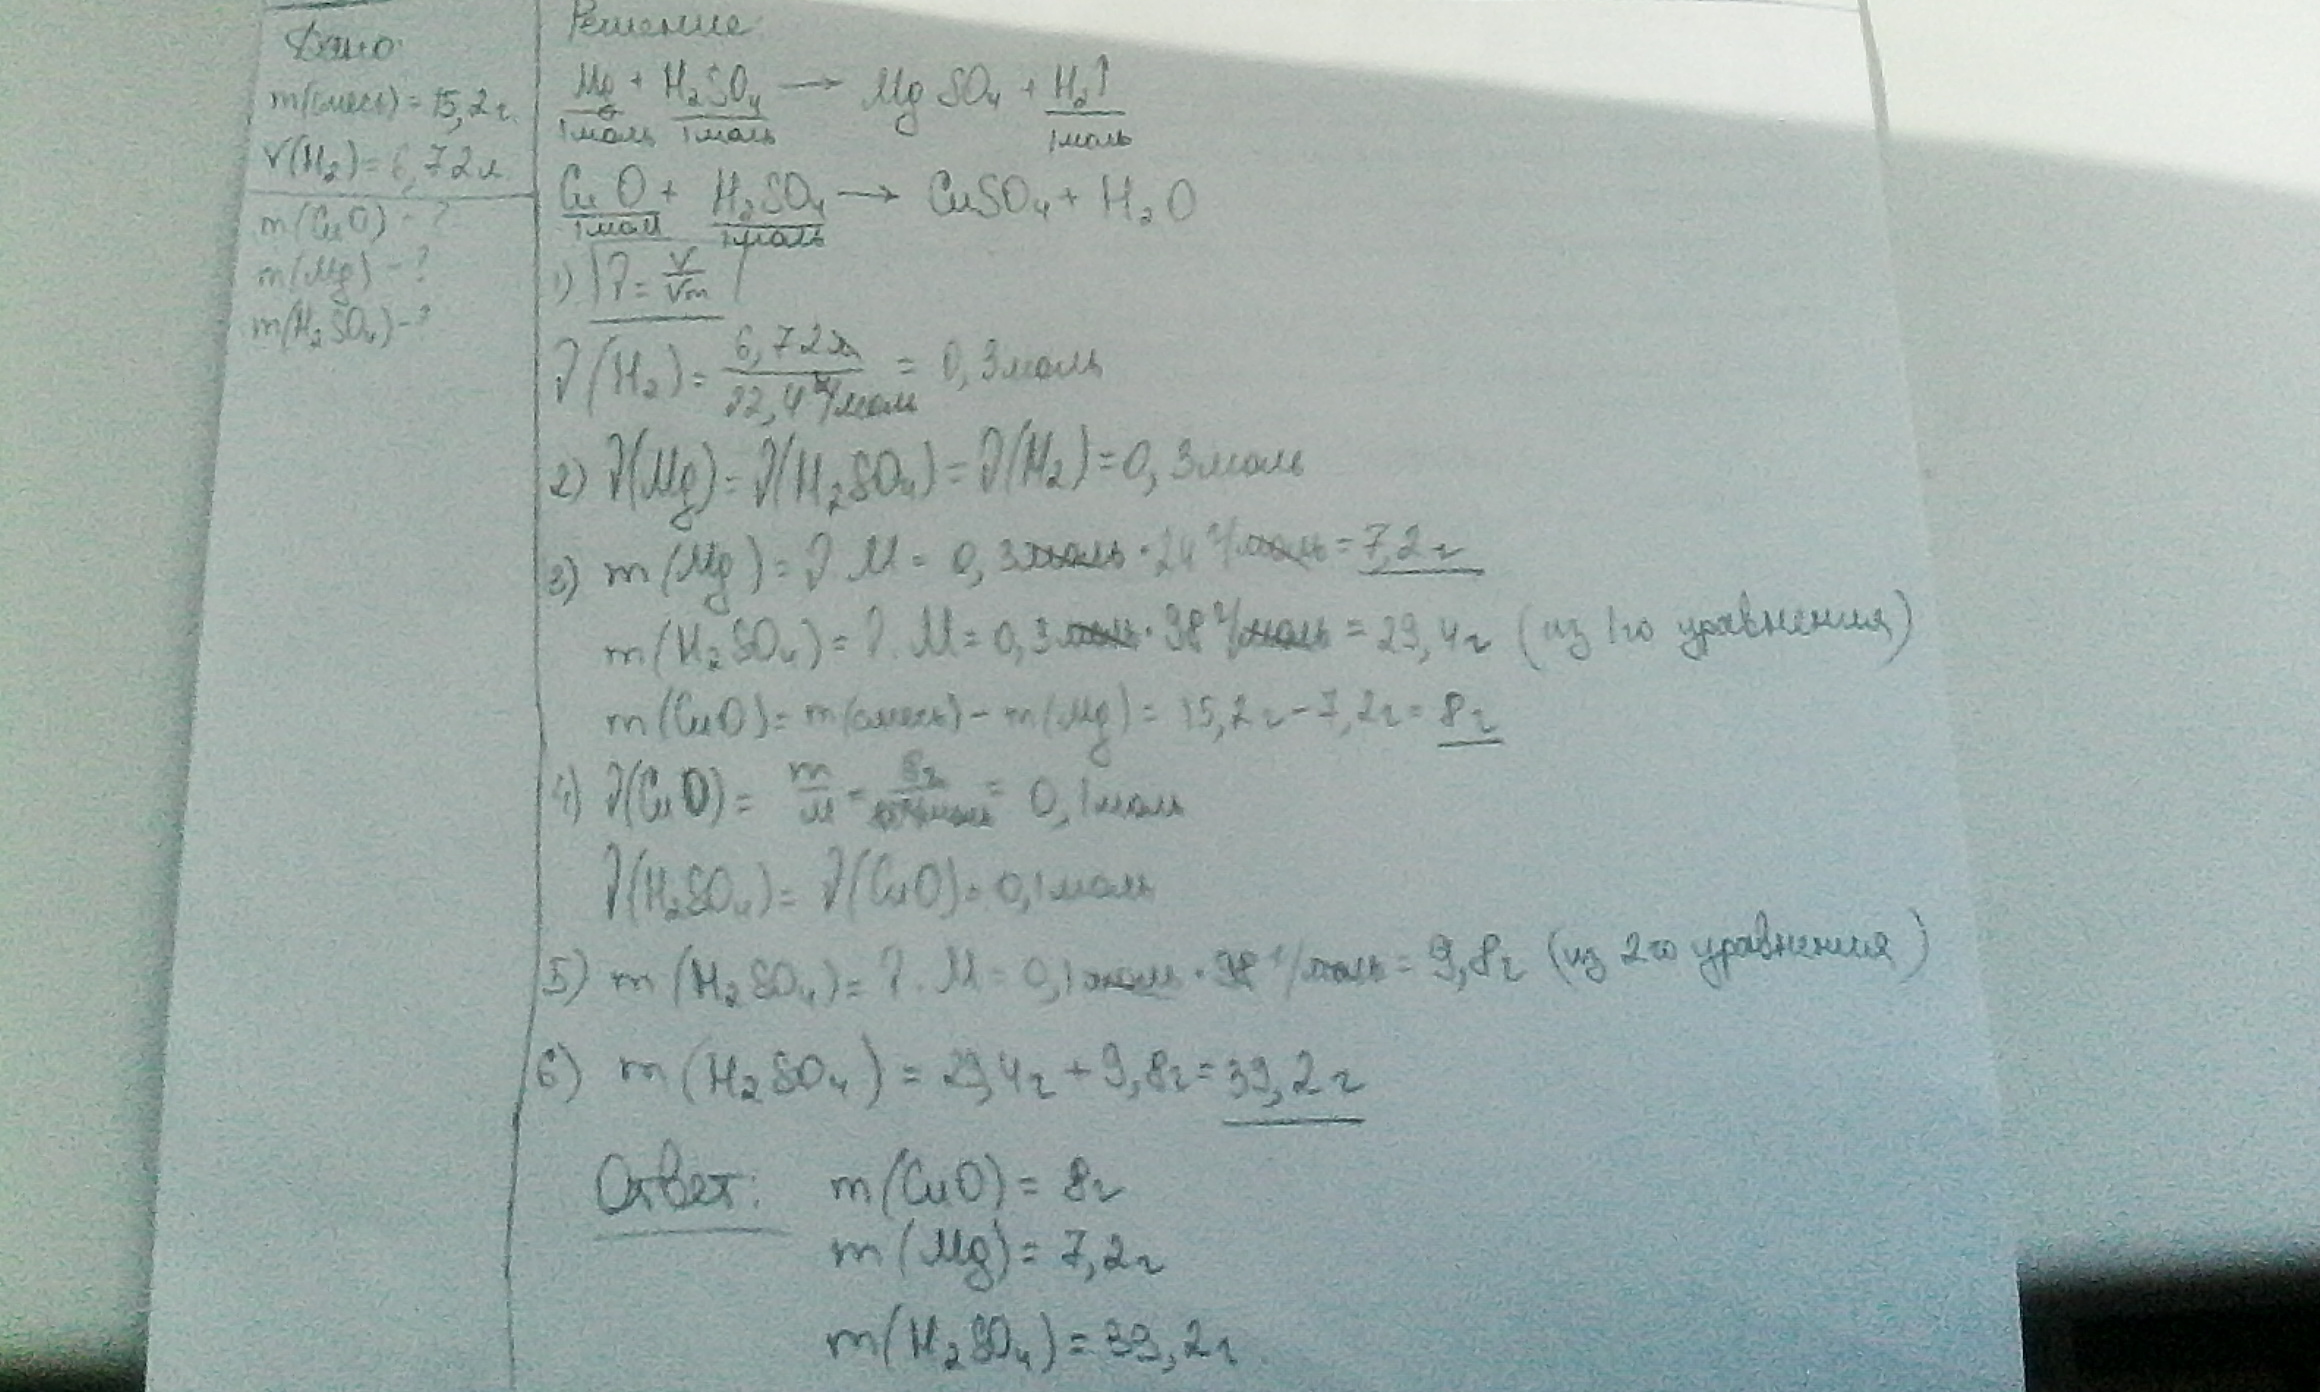 Дано:
m(смесь) = 15,2г.
V(H₂) = 6,72л
m(CuO) - ?
m(Mg) - ?
m(H₂SO₄) - ?
Решение:
Mg + H₂SO₄ → MgSO₄ + H₂↑
1моль 1моль 1моль
CuO + H₂SO₄ → CuSO₄ + H₂O
1моль 1моль
1) ν = V/Vm
ν(H₂) = 6,72л / 22,4 л/моль = 0,3моль
2) ν(Mg) = ν(H₂SO₄) = ν(H₂) = 0,3моль
3) m(Mg) = ν · M = 0,3моль · 24 г/моль = 7,2г
m(H₂SO₄) = ν · M = 0,3моль · 98 г/моль = 29,4г (из 1го уравнения)
m(CuO) = m(смесь) - m(Mg) = 15,2г - 7,2г = 8г
4) ν(CuO) = m/M = 8г / 80 г/моль = 0,1моль
ν(H₂SO₄) = ν(CuO) = 0,1моль
5) m(H₂SO₄) = ν · M = 0,1моль · 98 г/моль = 9,8г (из 2го уравнения)
6) m(H₂SO₄) = 29,4г + 9,8г = 39,2г
Ответ: m(CuO) = 8г
m(Mg) = 7,2г
m(H₂SO₄) = 39,2г